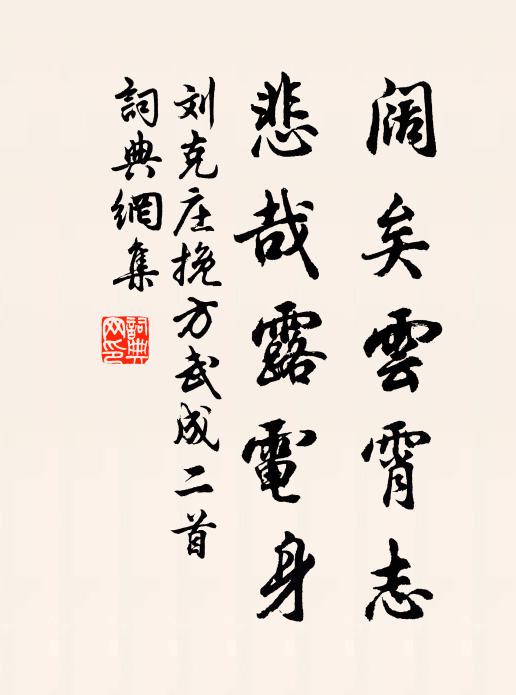 阔矣雲霄志
悲哉露電身
刘克庄挽方武成二首
詞典網集
詞典
网印